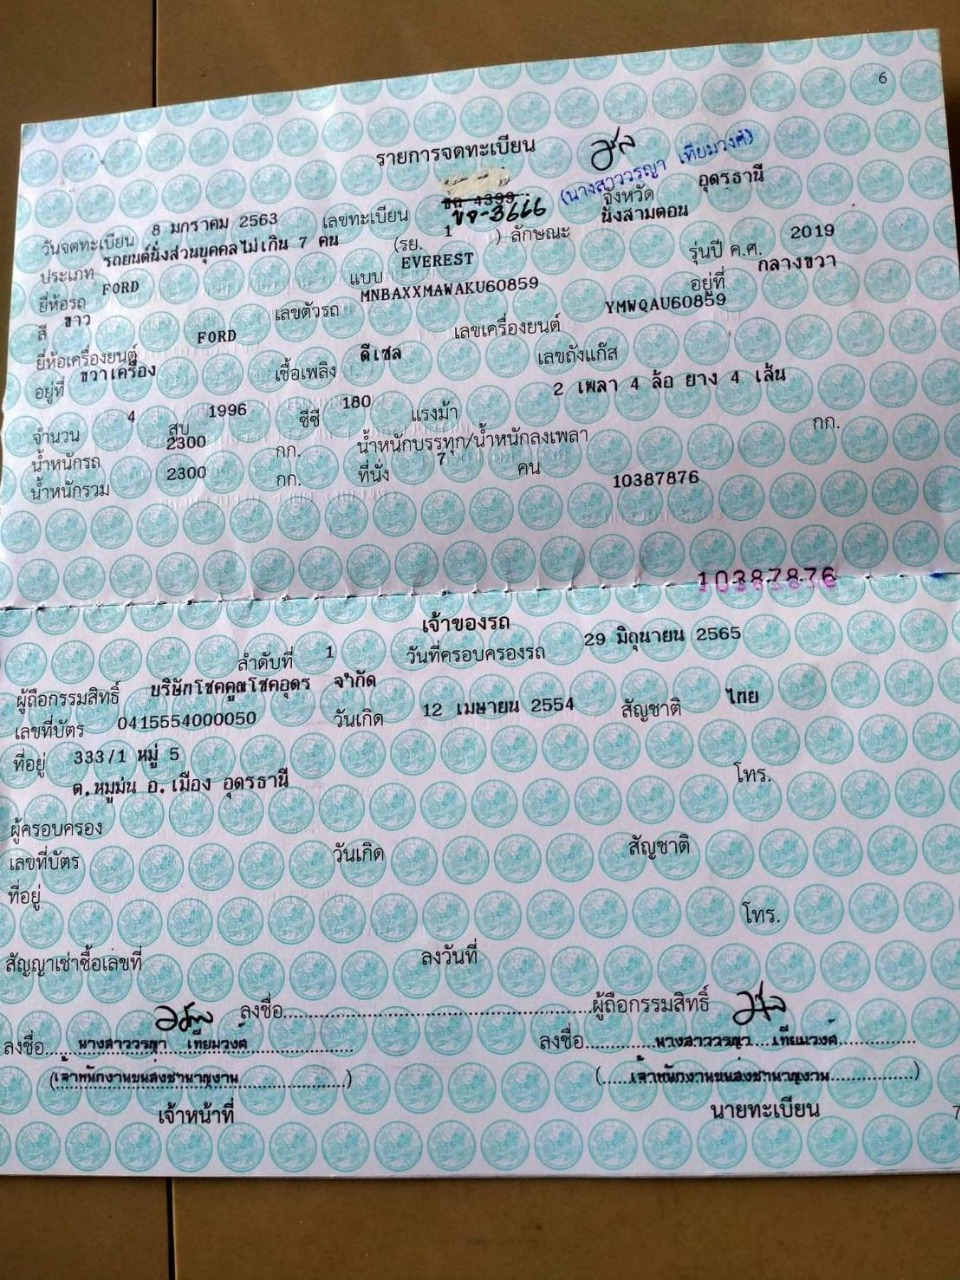 6
รายการจดทะเบียน
(นางสาววรญา เทียมวงศ์)
วันจดทะเบียน 8 มกราคม 2563 เลขทะเบียน ขจ-3666 จังหวัด อุดรธานี
ประเภท รถยนต์นั่งส่วนบุคคลไม่เกิน 7 คน (รย. 1 ) ลักษณะ นั่งสามตอน
ยี่ห้อรถ FORD แบบ EVEREST รุ่นปี ค.ศ. 2019
สี ขาว เลขตัวรถ MNBAXXMAWAKU60859 อยู่ที่ กลางขวา
ยี่ห้อเครื่องยนต์ FORD เลขเครื่องยนต์ YMWQAU60859
อยู่ที่ ขวาเครื่อง เชื้อเพลิง ดีเซล เลขถังแก๊ส
จำนวน 4 สูบ 1996 ซีซี 180 แรงม้า 2 เพลา 4 ล้อ ยาง 4 เส้น
น้ำหนักรถ 2300 กก. น้ำหนักบรรทุก/น้ำหนักลงเพลา กก.
น้ำหนักรวม 2300 กก. ที่นั่ง 7 คน 10387876
10387876
เจ้าของรถ
ลำดับที่ 1 วันที่ครอบครองรถ 29 มิถุนายน 2565
ผู้ถือกรรมสิทธิ์ บริษัทโชคคูณโชคอุดร จำกัด
เลขที่บัตร 0415554000050 วันเกิด 12 เมษายน 2554 สัญชาติ ไทย
ที่อยู่ 333/1 หมู่ 5
ต.หมูม่น อ.เมือง อุดรธานี โทร.
ผู้ครอบครอง
เลขที่บัตร วันเกิด สัญชาติ
ที่อยู่
โทร.
สัญญาเช่าซื้อเลขที่ ลงวันที่
ลงชื่อ ผู้ถือกรรมสิทธิ์
ลงชื่อ นางสาววรญา เทียมวงศ์ ลงชื่อ นางสาววรญา เทียมวงศ์
(เจ้าพนักงานขนส่งชำนาญงาน) (เจ้าพนักงานขนส่งชำนาญงาน)
เจ้าหน้าที่ นายทะเบียน
7